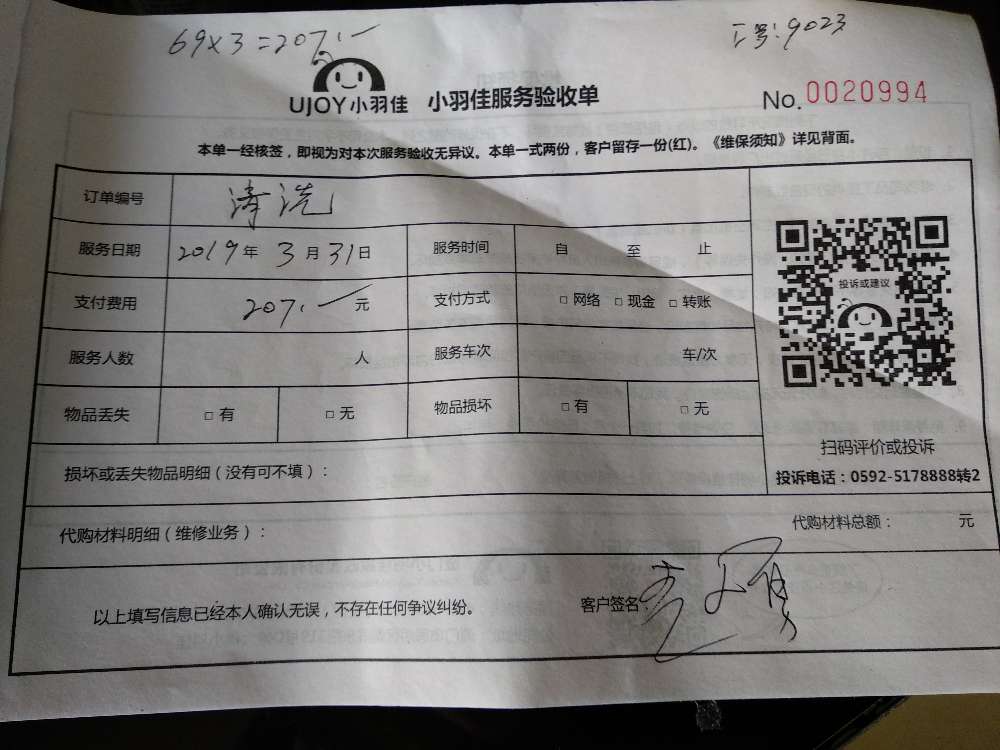 69×3=207.一
工号:9023
UJOY小羽佳 小羽佳服务验收单
No.0020994
本单一经核签，即视为对本次服务验收无异议。本单一式两份，客户留存一份(红)。《维保须知》详见背面。
订单编号 清洗
服务日期 2019年 3月 31日 服务时间 自 至 止
支付费用 207.一 元 支付方式 □ 网络 □ 现金 □ 转账
服务人数 人 服务车次 车/次
物品丢失 □ 有 □ 无 物品损坏 □ 有 □ 无
投诉或建议
扫码评价或投诉
投诉电话：0592-5178888转2
损坏或丢失物品明细（没有可不填）：
代购材料明细（维修业务）：
代购材料总额： 元
以上填写信息已经本人确认无误，不存在任何争议纠纷。
客户签名：